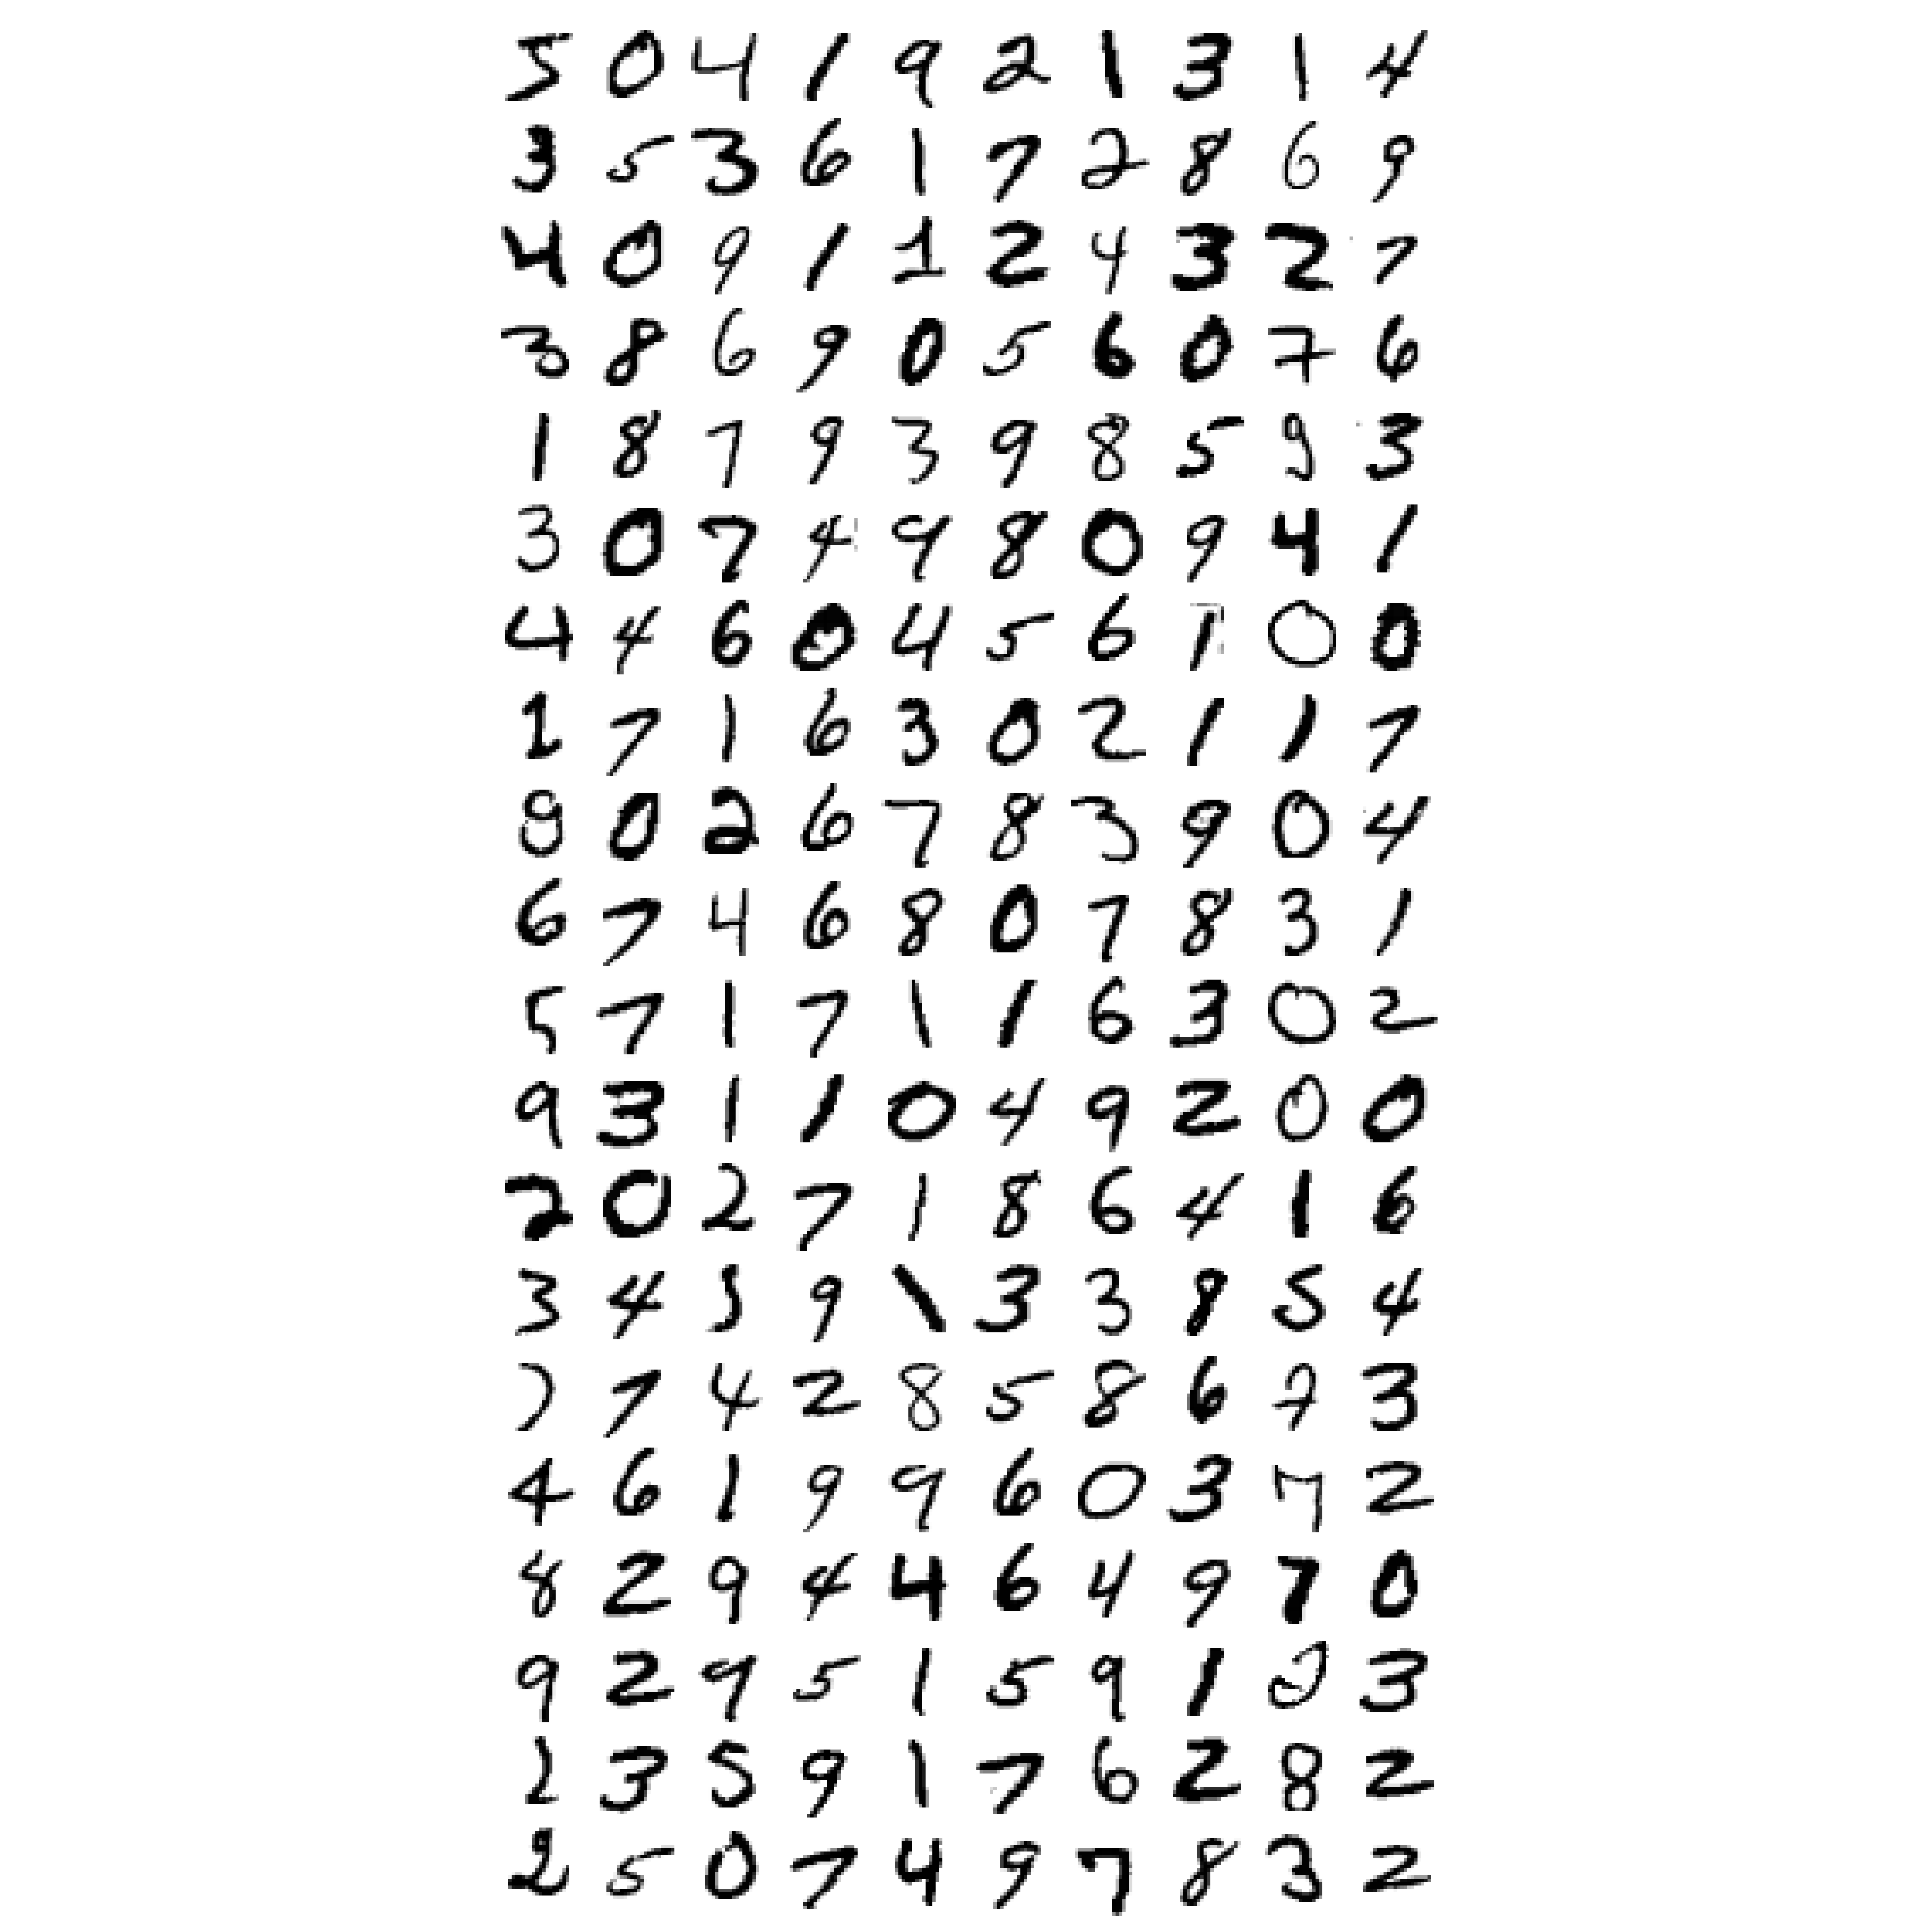 5 0 4 1 9 2 1 3 1 4
3 5 3 6 1 7 2 8 6 9
4 0 9 1 1 2 4 3 2 7
3 8 6 9 0 5 6 0 7 6
1 8 7 9 3 9 8 5 9 3
3 0 7 4 9 8 0 9 4 1
4 4 6 0 4 5 6 1 0 0
1 7 1 6 3 0 2 1 1 7
8 0 2 6 7 8 3 9 0 4
6 7 4 6 8 0 7 8 3 1
5 7 1 7 1 1 6 3 0 2
9 3 1 1 0 4 9 2 0 0
2 0 2 7 1 8 6 4 1 6
3 4 5 9 1 3 3 8 5 4
7 7 4 2 8 5 8 6 7 3
4 6 1 9 9 6 0 3 7 2
8 2 9 4 4 6 4 9 7 0
9 2 9 5 1 5 9 1 2 3
2 3 5 9 1 7 6 2 8 2
2 5 0 7 4 9 7 8 3 2